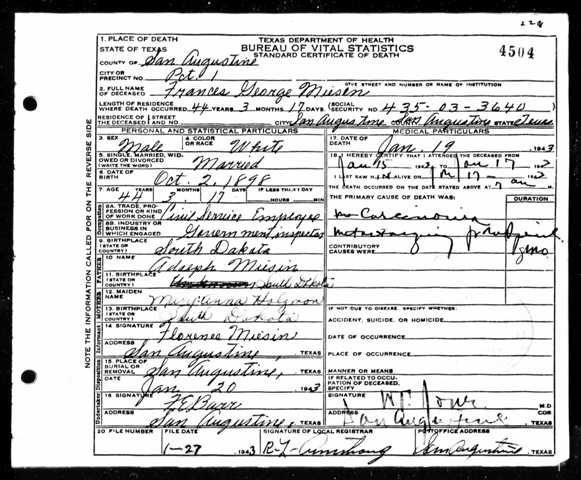 228
1. PLACE OF DEATH TEXAS DEPARTMENT OF HEALTH
STATE OF TEXAS BUREAU OF VITAL STATISTICS 4504
COUNTY OF San Augustine STANDARD CERTIFICATE OF DEATH
CITY OR PRECINCT NO. Pct. 1 GIVE STREET AND NUMBER OR NAME OF INSTITUTION
2. FULL NAME OF DECEASED Frances George Miesen
LENGTH OF RESIDENCE WHERE DEATH OCCURRED 44 YEARS 3 MONTHS 17 DAYS (SOCIAL SECURITY NO. 435-03-3640
RESIDENCE OF THE DECEASED STREET AND NO. CITY San Augustine COUNTY San Augustine STATE Texas
PERSONAL AND STATISTICAL PARTICULARS
3. SEX Male 4. COLOR OR RACE White
5. SINGLE, MARRIED, WIDOWED OR DIVORCED (WRITE THE WORD) Married
6. DATE OF BIRTH Oct. 2, 1898
7. AGE YEARS MONTHS DAYS IF LESS THAN 1 DAY
44 3 17 HOURS MIN
8A. TRADE, PROFESSION OR KIND OF WORK DONE Civil Service Employee
8B. INDUSTRY OR BUSINESS IN WHICH ENGAGED Government inspector
9. BIRTHPLACE (STATE OR COUNTRY) South Dakota
10. NAME Adolph Miesin
11. BIRTHPLACE (STATE OR COUNTRY) Unknown South Dakota
12. MAIDEN NAME Mary Anna
13. BIRTHPLACE (STATE OR COUNTRY) South Dakota
14. SIGNATURE Florence Miesin
ADDRESS San Augustine, TEXAS
15. PLACE OF BURIAL OR REMOVAL San Augustine, TEXAS
DATE Jan 20 1943
16. SIGNATURE F.E. Barr
ADDRESS San Augustine, TEXAS
MEDICAL PARTICULARS
17. DATE OF DEATH Jan 19 1943
18. I HEREBY CERTIFY THAT I ATTENDED THE DECEASED FROM
Jan 15 1943 TO Jan 17 1943
I LAST SAW H ALIVE ON 17 194
THE DEATH OCCURRED ON THE DATE STATED ABOVE AT 7 am M.
THE PRIMARY CAUSE OF DEATH WAS: DURATION
Carcenoma
CONTRIBUTORY CAUSES WERE:
IF NOT DUE TO DISEASE, SPECIFY WHETHER:
ACCIDENT, SUICIDE, OR HOMICIDE
DATE OF OCCURRENCE
PLACE OF OCCURRENCE
IF RELATED TO OCCUPATION OF DECEASED, SPECIFY
SIGNATURE M.D.
ADDRESS San Augustine COR TEXAS
20. FILE NUMBER FILE DATE SIGNATURE OF LOCAL REGISTRAR POSTOFFICE ADDRESS
1-27 1943 R-L- Armstrong San Augustine TEXAS
NOTE THE INFORMATION CALLED FOR ON THE REVERSE SIDE